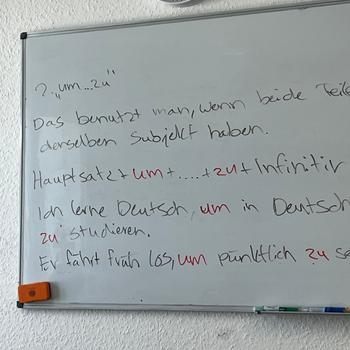 2. „um...zu"
Das benutzt man, wenn beide Teile
derselben Subjekt haben.
Hauptsatz + um + .... + zu + Infinitiv
Ich lerne Deutsch, um in Deutsch
zu studieren.
Er fährt früh los, um pünktlich zu se